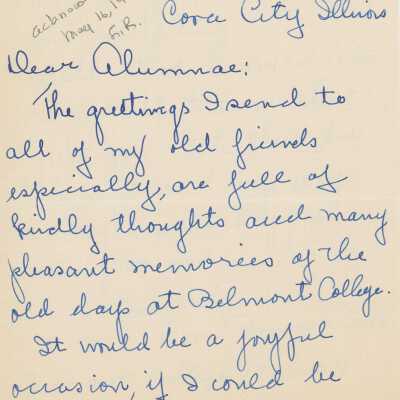 Cora City Illinois
May 16, 19
E.R.
Dear Alumnae:
The greetings I send to
all of my old friends
especially, are full of
kindly thoughts and many
pleasant memories of the
old days at Belmont College.
It would be a joyful
occasion, if I could be